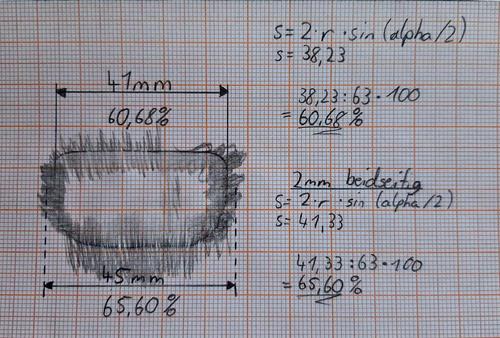 41mm
60,68%
45mm
65,60%
s= 2·r·sin(alpha/2)
s= 38,23
38,23:63·100
= 60,68%
2mm beidseitig
s= 2·r·sin(alpha/2)
s= 41,33
41,33:63·100
= 65,60%